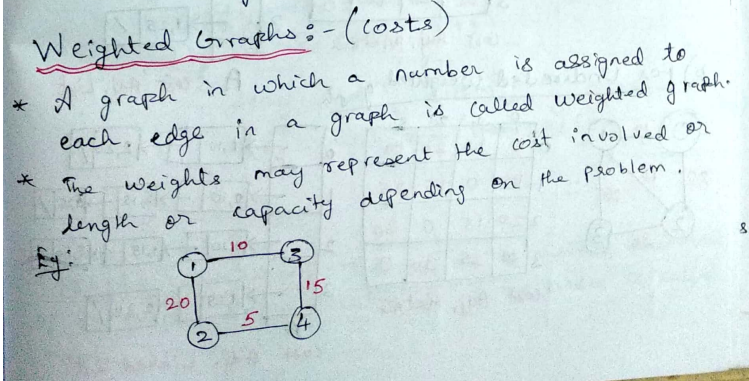 Weighted Graphs :- (costs)
* A graph in which a number is assigned to
each edge in a graph is called weighted graph.
* The weights may represent the cost involved or
length or capacity depending on the problem.
Eg:
1 10 3
20 15
2 5 4